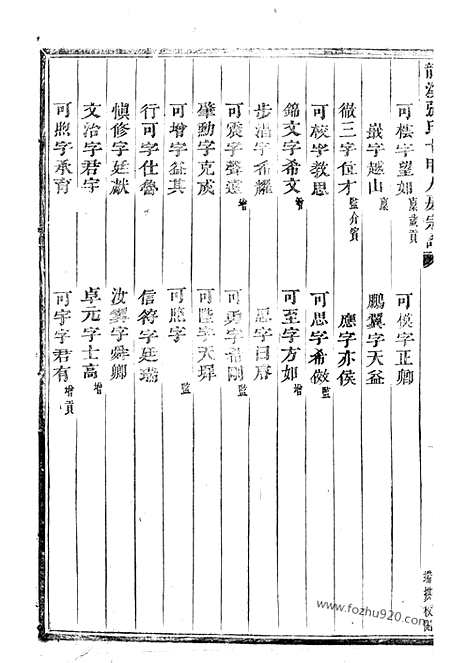 可楷字望如 廩歲貢 可模字正卿
嶽字越山 廩 鵬翼字天益
徵三字位才 監介賓 應字亦侯
可校字教思 可思字希儆 監
錦文字希文 增 可至字方如 增
步沼字希耀 思字日睿
可震字聲遠 增 可勇字希剛 監
肇勳字克成 可陞字天墀
可增字益其 可熙字 監
行可字仕魯 信符字廷瑞
愼修字廷獻 汝翼字舜卿
文治字君宇 卓元字士高 增
可熙字承育 可宇字君有 增貢
www.fozhu920.com